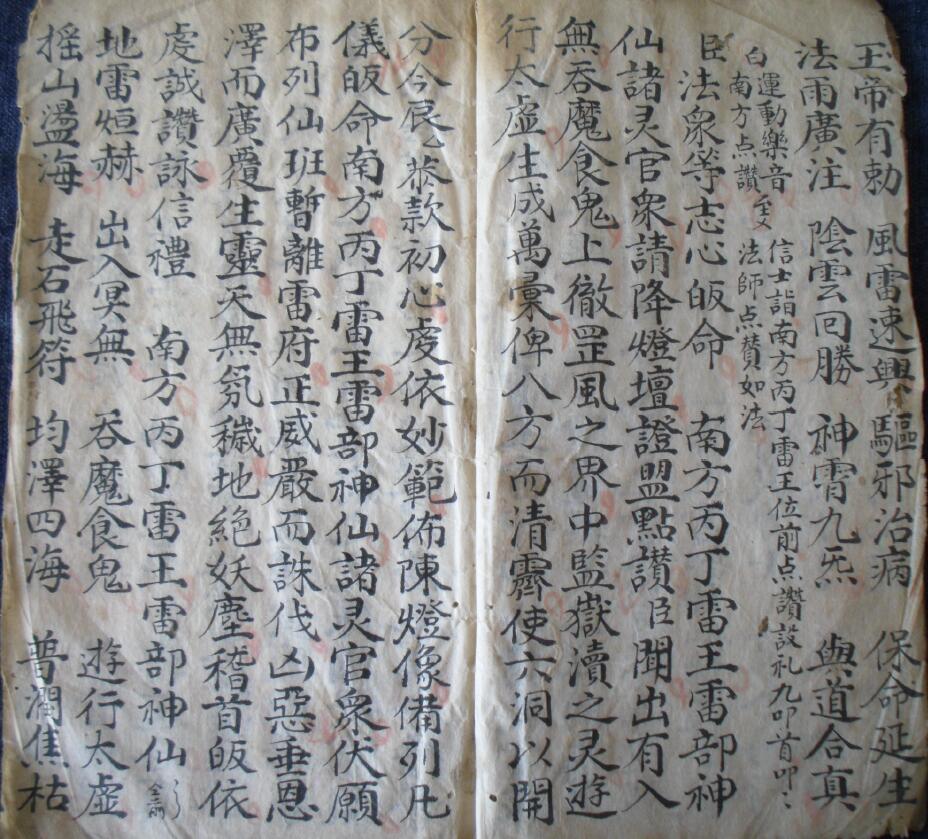 玉帝有勅 風雷速興 驅邪治病 保命延生
法雨廣注 陰雲回勝 神霄九炁 與道合真
白運動樂音 信士詣南方丙丁雷王位前点讚設礼九叩首叩〻
南方点讚 法師点赞如法
臣法衆等志心皈命 南方丙丁雷王雷部神
仙諸灵官衆請降燈壇證盟點讃臣聞出有入
無吞魔食鬼上徹罡風之界中監嶽瀆之灵遊
行太虛生成萬彚俾八方而清霽使六洞以開
分今辰〻恭款初心虔依妙範佈陳燈像備列凡
儀皈命南方丙丁雷王雷部神仙諸灵官衆伏願
布列仙班暫離雷府正威嚴而誅伐凶惡垂恩
澤而廣覆生靈天無氛穢地絕妖塵稽首皈依
虔誠讚詠信禮 南方丙丁雷王雷部神仙
地雷烜赫 出入冥無 吞魔食鬼 遊行太虛
摇山盪海 走石飛符 均澤四海 普潤焦枯